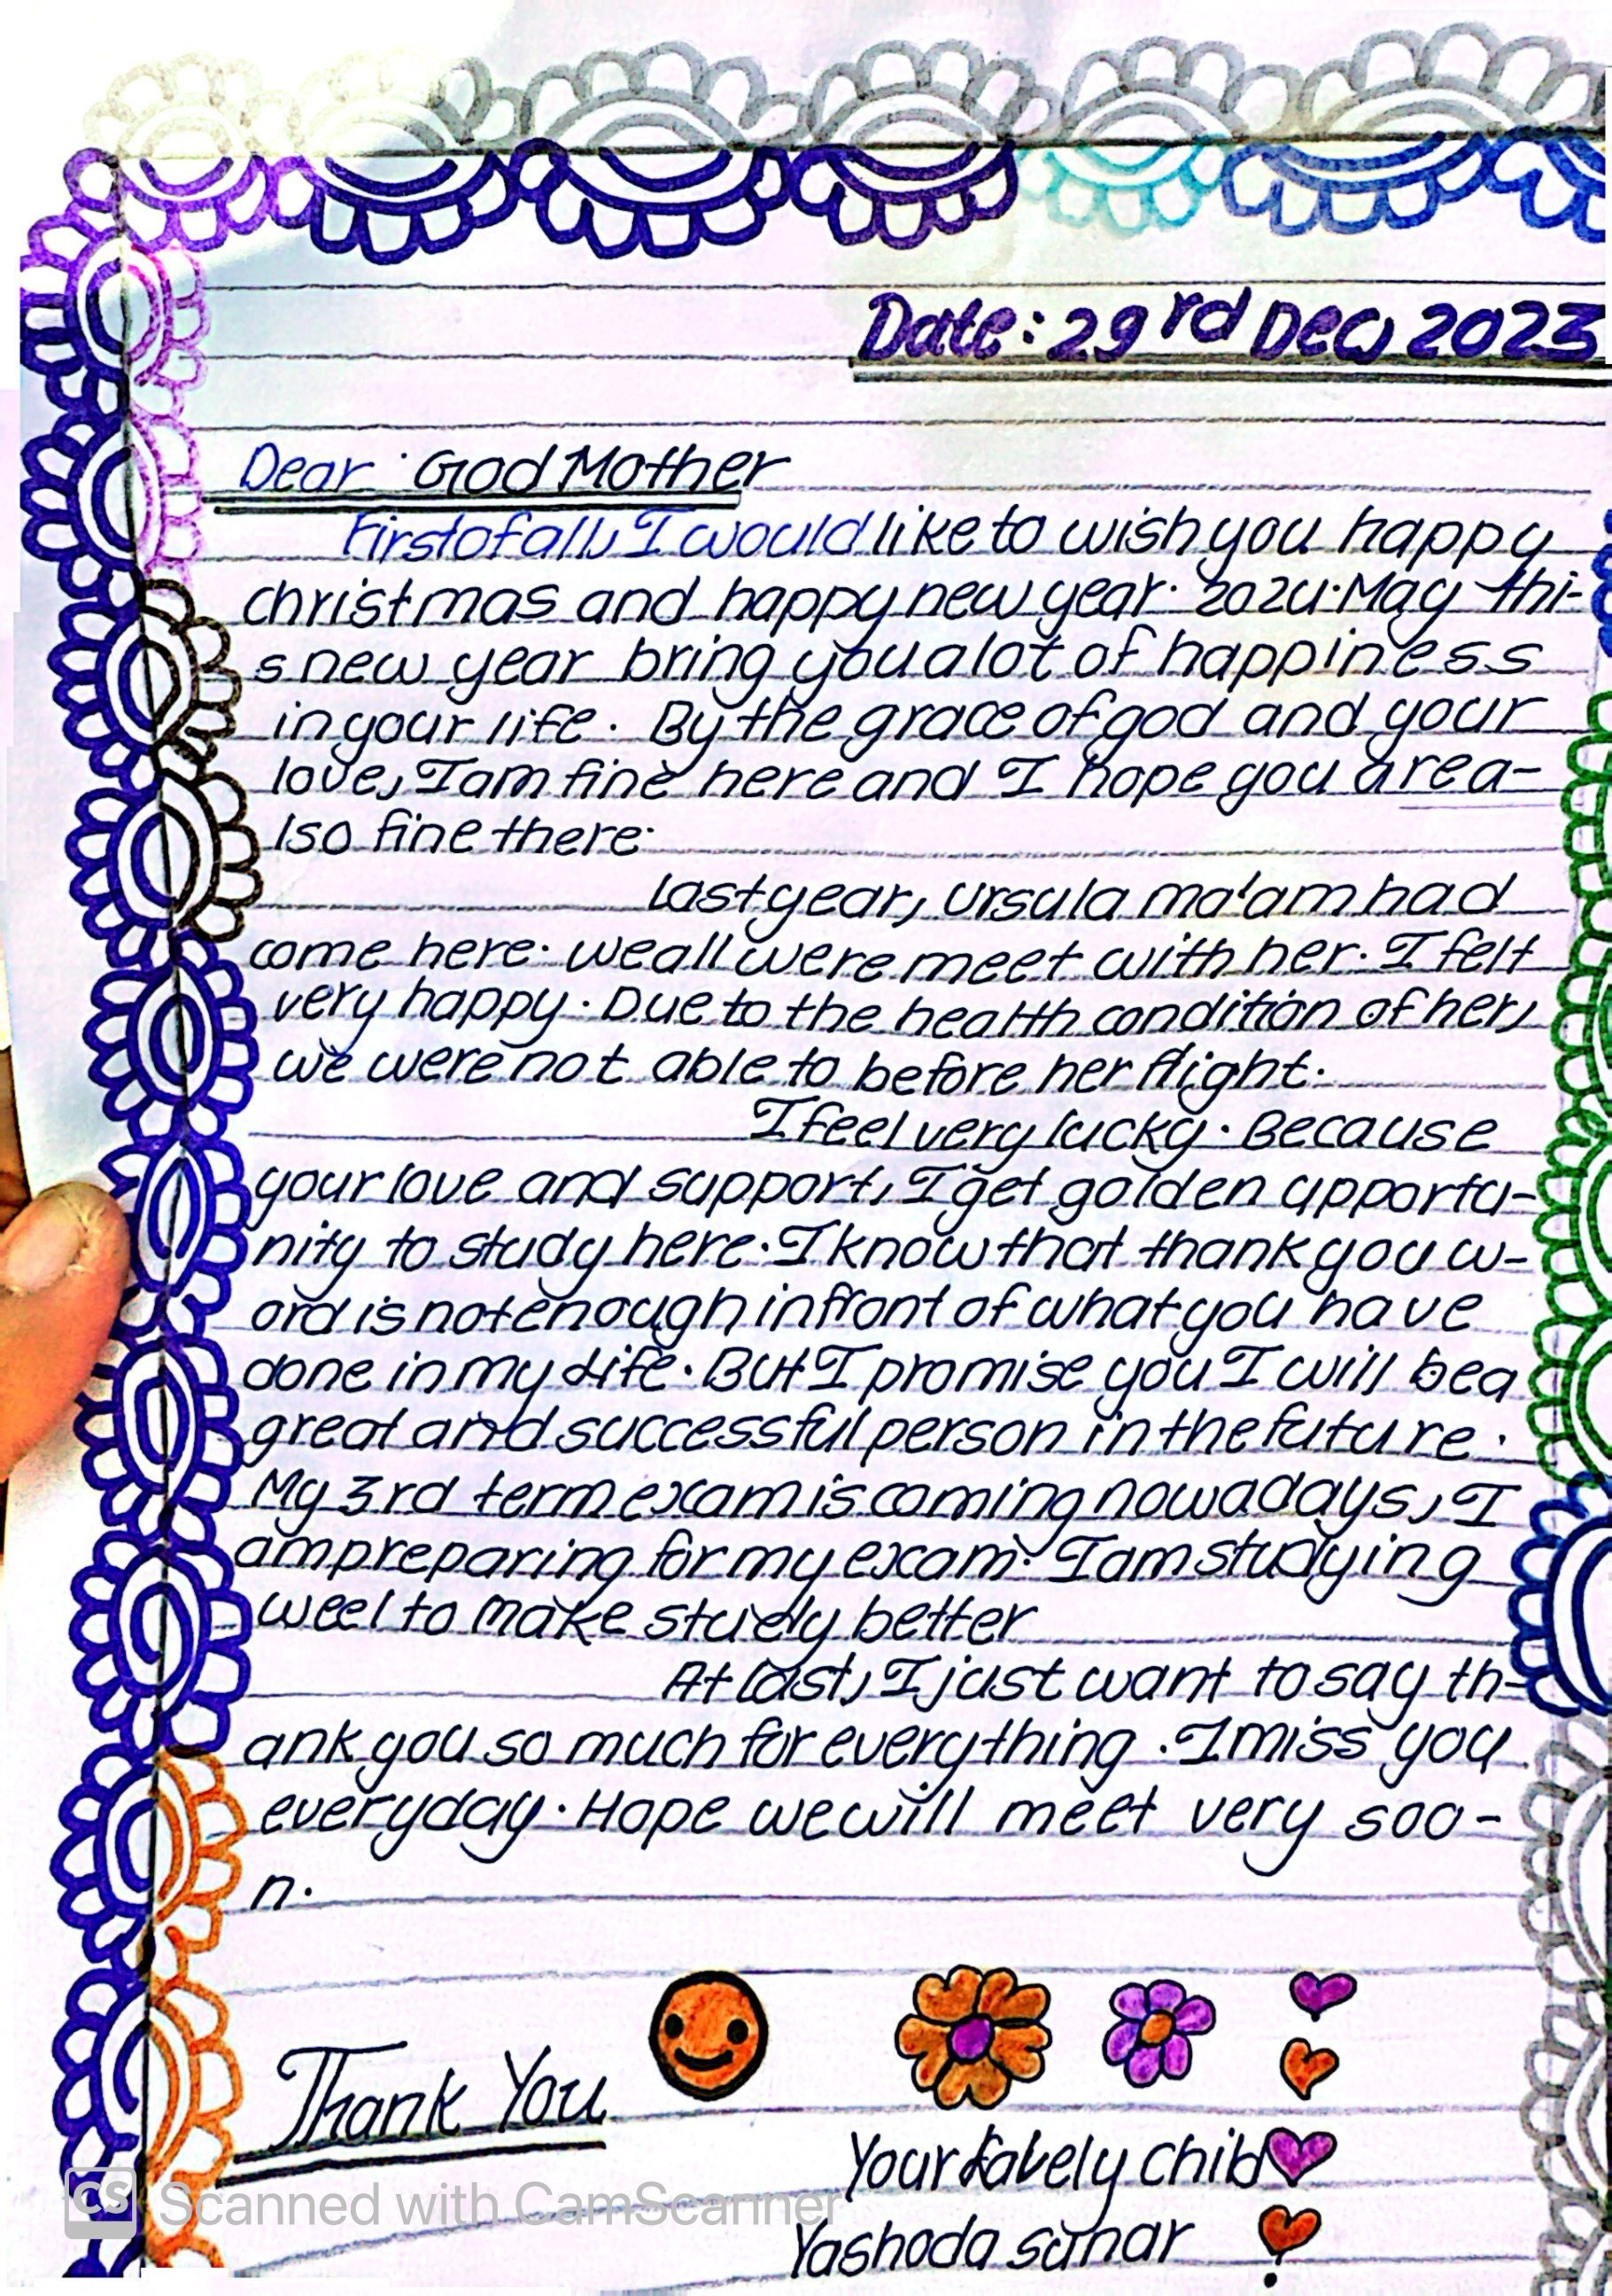 Date: 29rd Dec, 2023
Dear God Mother
First of all, I would like to wish you happy
christmas and happy new year. 2024. May thi-
s new year bring you a lot of happiness
in your life. By the grace of god and your
love, I am fine here and I hope you are a-
lso fine there.
Last year, Ursula ma'am had
come here. we all were meet with her. I felt
very happy. Due to the health condition of her,
we were not able to before her flight.
I feel very lucky. Because
your love and support, I get golden apportu-
nity to study here. I know that thank you w-
ord is not enough in front of what you have
done in my life. But I promise you I will be a
great and successful person in the future.
My 3rd term exam is coming nowadays, I
am preparing for my exam. I am studying
weel to make study better
At last, I just want to say th-
ank you so much for everything. I miss you
everyday. Hope we will meet very soo-
n.
Thank You
Your lovely child
Yashoda sunar
CS Scanned with CamScanner